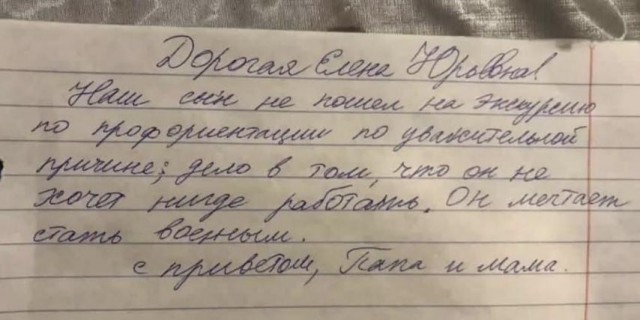 Дорогая Елена Юрьевна!
Наш сын не пошел на экскурсию
по профориентации по уважительной
причине; дело в том, что он не
хочет нигде работать. Он мечтает
стать военным.
с приветом, Папа и мама.